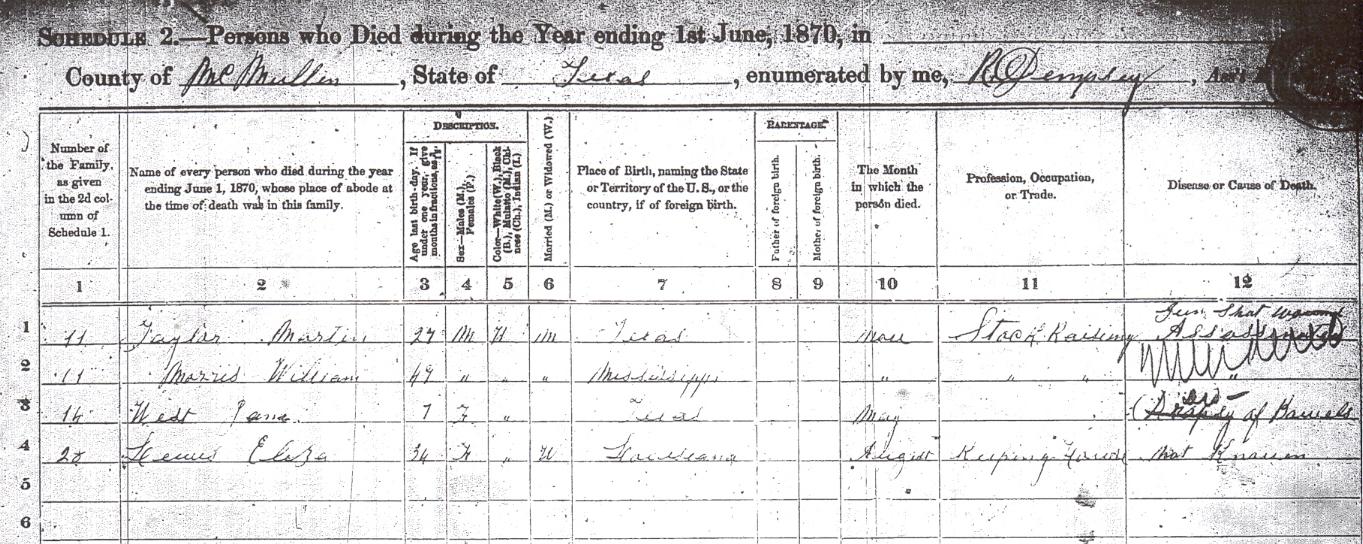 SCHEDULE 2.—Persons who Died during the Year ending 1st June, 1870, in
County of McMullin, State of Texas, enumerated by me, R Dempsey,
Number of the Family, as given in the 2d column of Schedule 1.
Name of every person who died during the year ending June 1, 1870, whose place of abode at the time of death was in this family.
DESCRIPTION.
Age last birth-day. If under one year, give months in fractions,
Sex—Males (M.), Females (F.)
Color—White (W.), Black (B.), Mulatto (M.), Chinese (Ch.), Indian (I.)
Married (M.) or Widowed (W.)
Place of Birth, naming the State or Territory of the U. S., or the country, if of foreign birth.
PARENTAGE.
Father of foreign birth.
Mother of foreign birth.
The Month in which the person died.
Profession, Occupation, or Trade.
Disease or Cause of Death.
1 2 3 4 5 6 7 8 9 10 11 12
1 11 Taylor Martin 27 M W M Texas Stock Raising Gun Shot wound
2 11 Morris William 49 " " " Mississippi " " " "
3 14 West 7 F " Texas May of Bowels
4 28 Lewis Eliza 34 F " W Louisiana August Keeping House Not Known
5
6